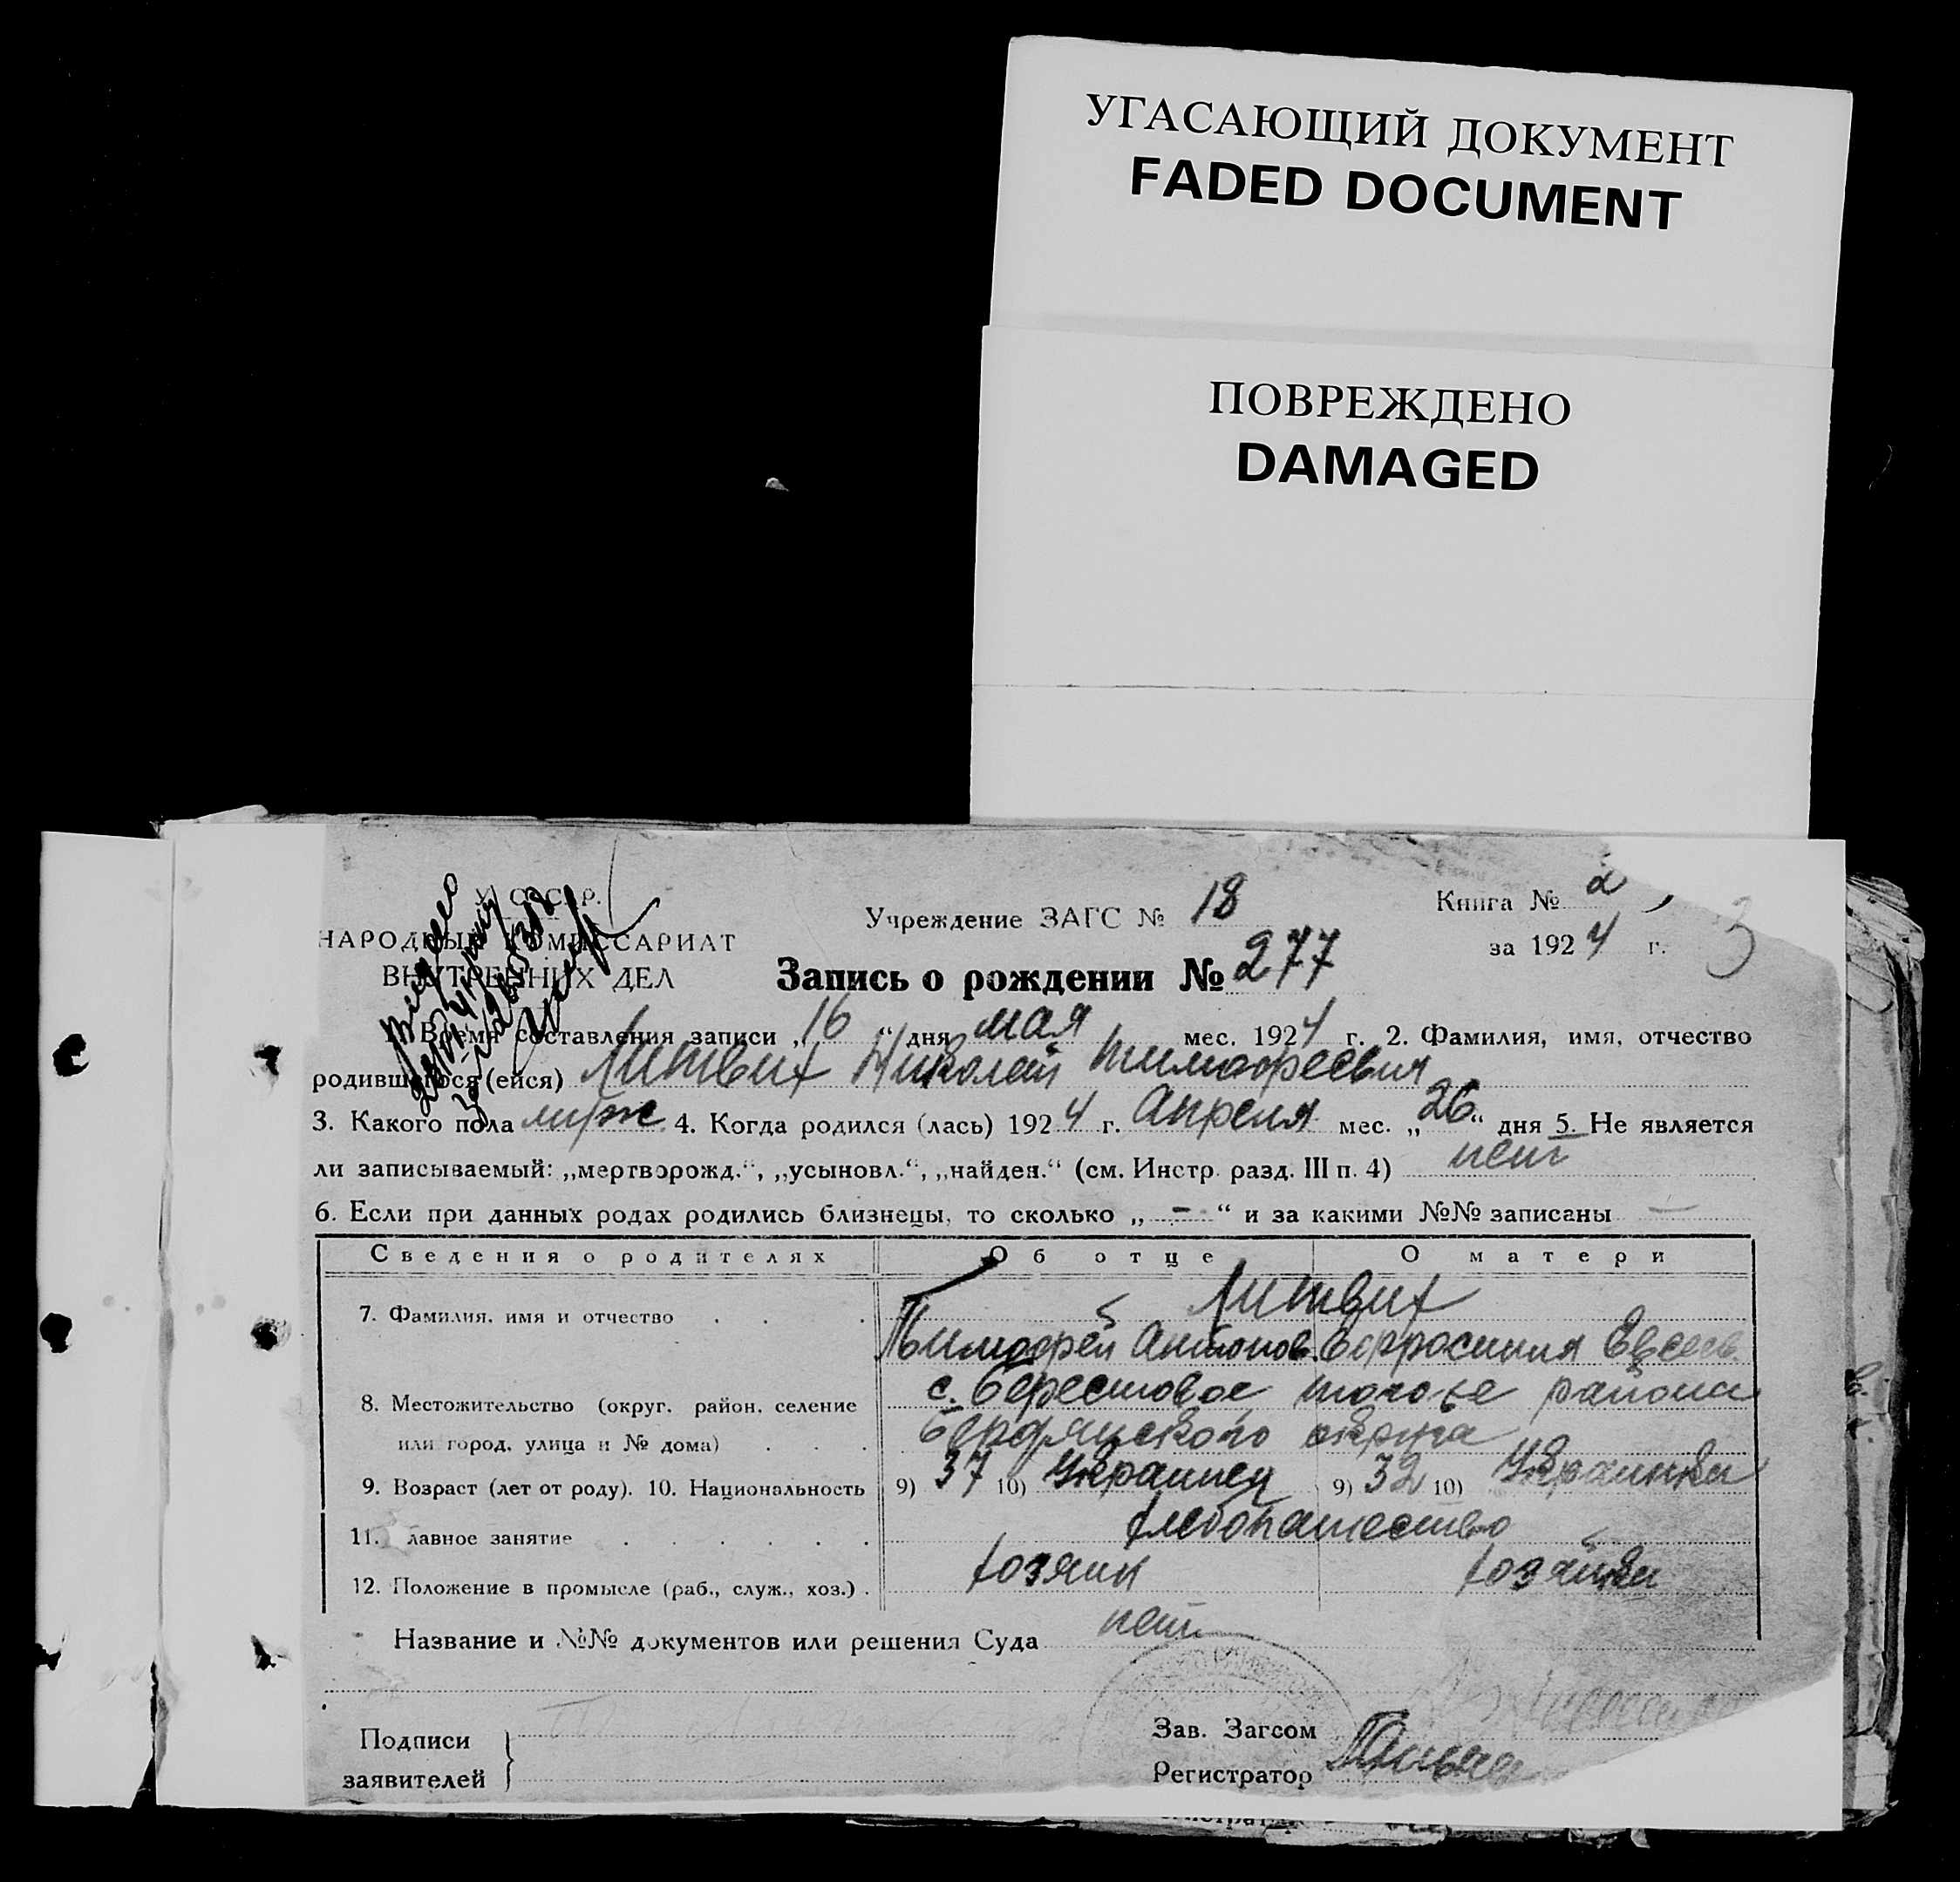 УГАСАЮЩИЙ ДОКУМЕНТ
FADED DOCUMENT
ПОВРЕЖДЕНО
DAMAGED
У. С. С. Р.
НАРОДНЫЙ КОМИССАРИАТ
ВНУТРЕННИХ ДЕЛ
Учреждение ЗАГС № 18
Книга № 2
за 1924 г.
3
Запись о рождении № 277
1. Время составления записи „16“ дня мая мес. 1924 г. 2. Фамилия, имя, отчество
родившегося (ейся) Литвин Николай Тимофеевич
3. Какого пола муж 4. Когда родился (лась) 1924 г. Апреля мес. „26“ дня 5. Не является
ли записываемый: „мертворожд.“, „усыновл.“, „найден.“ (см. Инстр. разд. III п. 4) нет
6. Если при данных родах родились близнецы, то сколько „ - “ и за какими №№ записаны —
Сведения о родителях Об отце О матери
Литвин
7. Фамилия, имя и отчество Тимофей Антонов. Ефросиния Евсеев.
8. Местожительство (округ, район, селение с. Берестовое того же района
или город, улица и № дома) Бердянского округа
9. Возраст (лет от роду). 10. Национальность 9) 37 10) Украинец 9) 32 10) Украинка
11. лавное занятие хлебопашество
12. Положение в промысле (раб., служ., хоз.) хозяин хозяйка
Название и №№ документов или решения Суда нет
Подписи
заявителей
Зав. Загсом
Регистратор